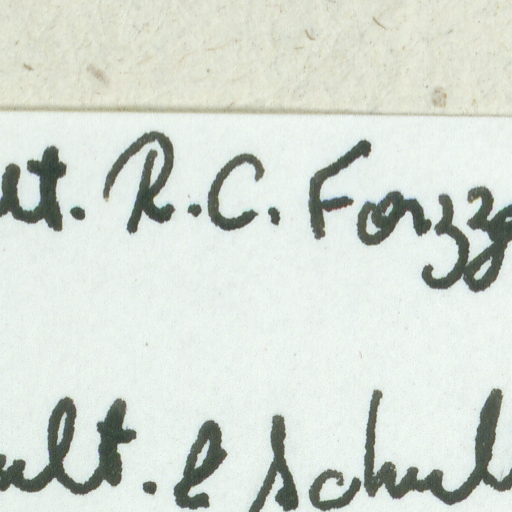 ult. R. C. Forzza
ult. e Schul